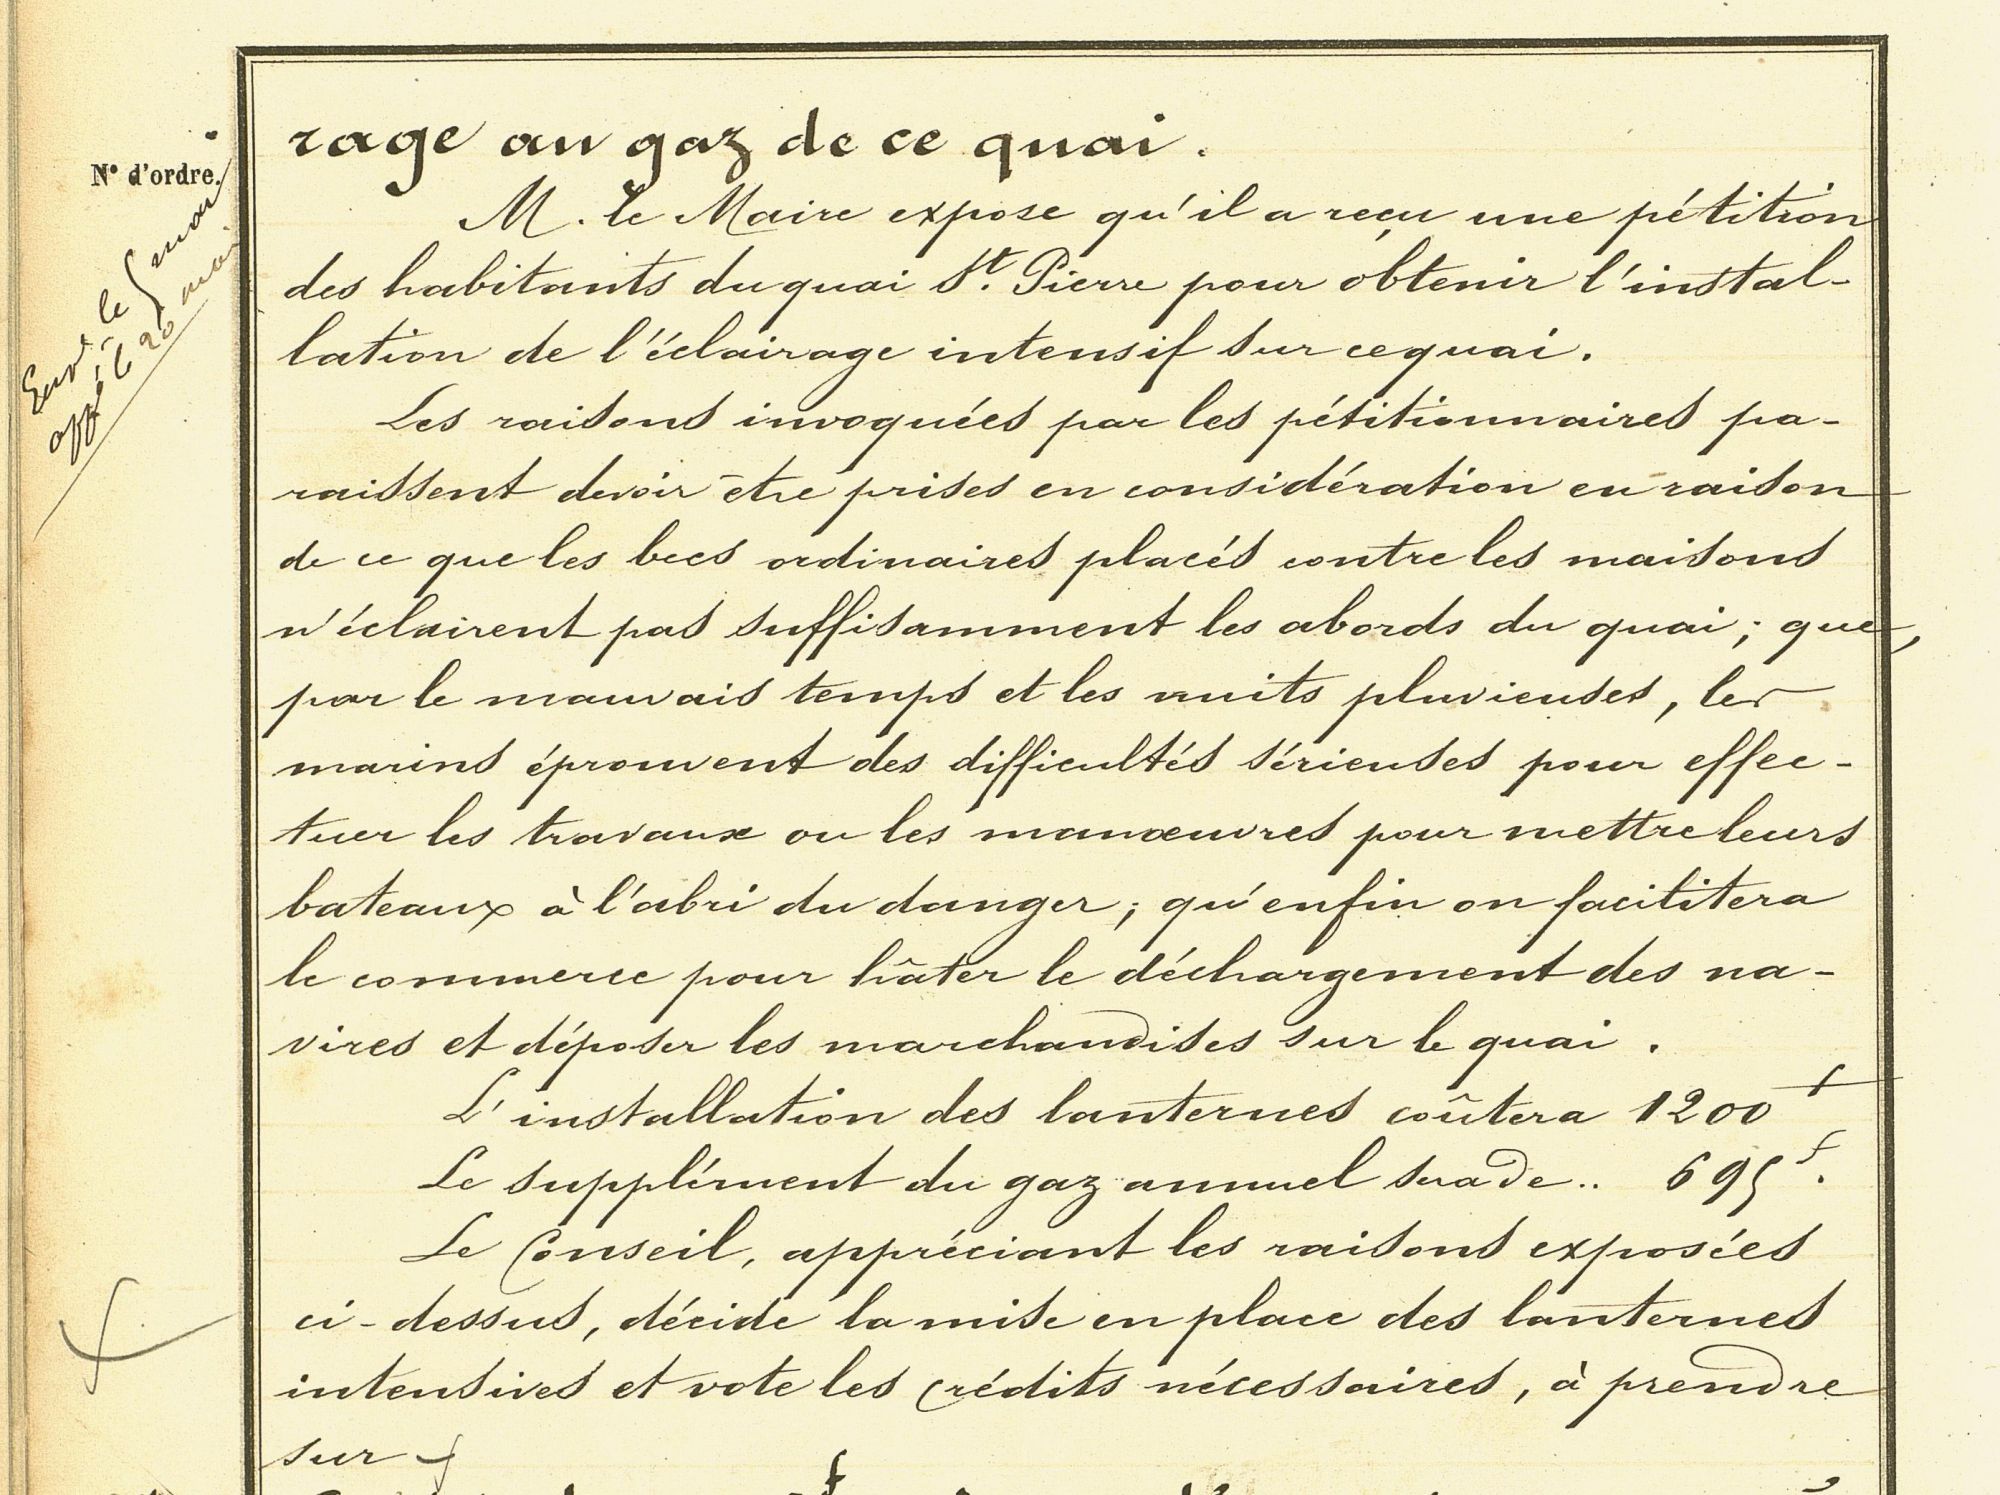 rage au gaz de ce quai.
N° d'ordre.
Envé le 5 mai
appé le 20 mai
M. le Maire expose qu'il a reçu une pétition
des habitants du quai St. Pierre pour obtenir l'instal-
lation de l'éclairage intensif sur ce quai.
Les raisons invoquées par les pétitionnaires pa-
raissent devoir être prises en considération en raison
de ce que les becs ordinaires placés contre les maisons
n'éclairent pas suffisamment les abords du quai ; que,
par le mauvais temps et les nuits pluvieuses, les
marins éprouvent des difficultés sérieuses pour effec-
tuer les travaux ou les manœuvres pour mettre leurs
bateaux à l'abri du danger ; qu'enfin on facilitera
le commerce pour hâter le déchargement des na-
vires et déposer les marchandises sur le quai.
L'installation des lanternes coûtera 1200 f
Le supplément du gaz annuel sera de .. 695 f.
Le Conseil, appréciant les raisons exposées
ci-dessus, décide la mise en place des lanternes
intensives et vote les crédits nécessaires, à prendre
sur